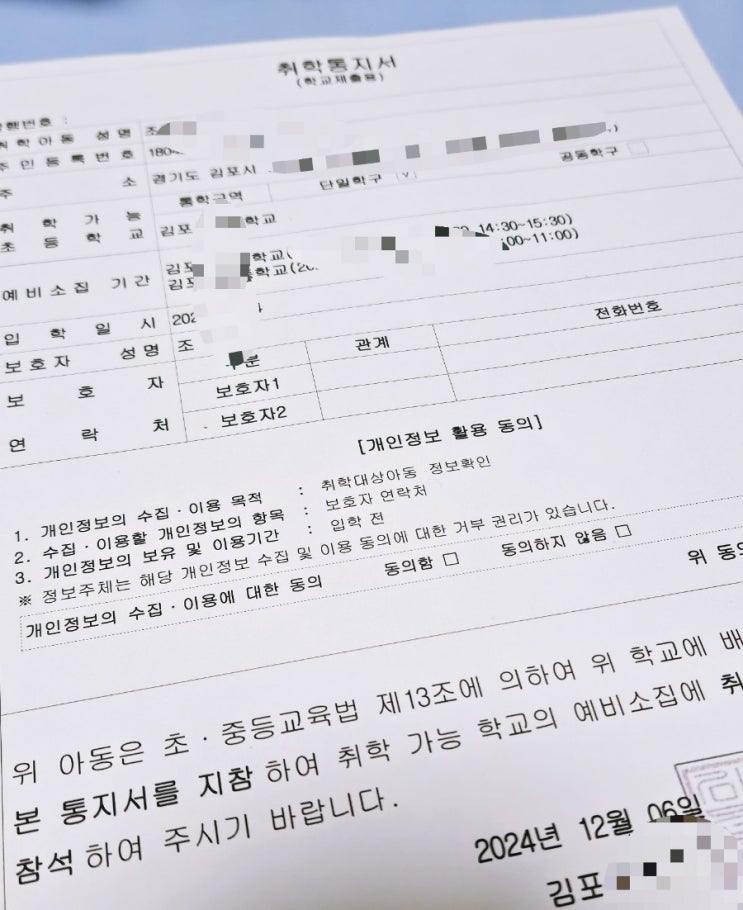 취학통지서
(학교제출용)
행번호 :
취학아동 성명 조
주민등록번호 180
주 소 경기도 김포시
통학구역 단일학구 ∨ 공동학구 □
취학가능
초등학교 김포 학교
예비소집 기간 김포 학교(
14:30~15:30)
김포 등학교(20 :00~11:00)
입학일시 202
보호자 성명 조
구분 관계 전화번호
보호자 보호자1
연락처 보호자2
[개인정보 활용 동의]
1. 개인정보의 수집·이용 목적 : 취학대상아동 정보확인
2. 수집·이용할 개인정보의 항목 : 보호자 연락처
3. 개인정보의 보유 및 이용기간 : 입학 전
※ 정보주체는 해당 개인정보 수집 및 이용 동의에 대한 거부 권리가 있습니다.
개인정보의 수집·이용에 대한 동의 동의함 □ 동의하지 않음 □
위 동의
위 아동은 초·중등교육법 제13조에 의하여 위 학교에 배
본 통지서를 지참하여 취학 가능 학교의 예비소집에 취
참석하여 주시기 바랍니다.
2024년 12월 06일
김포